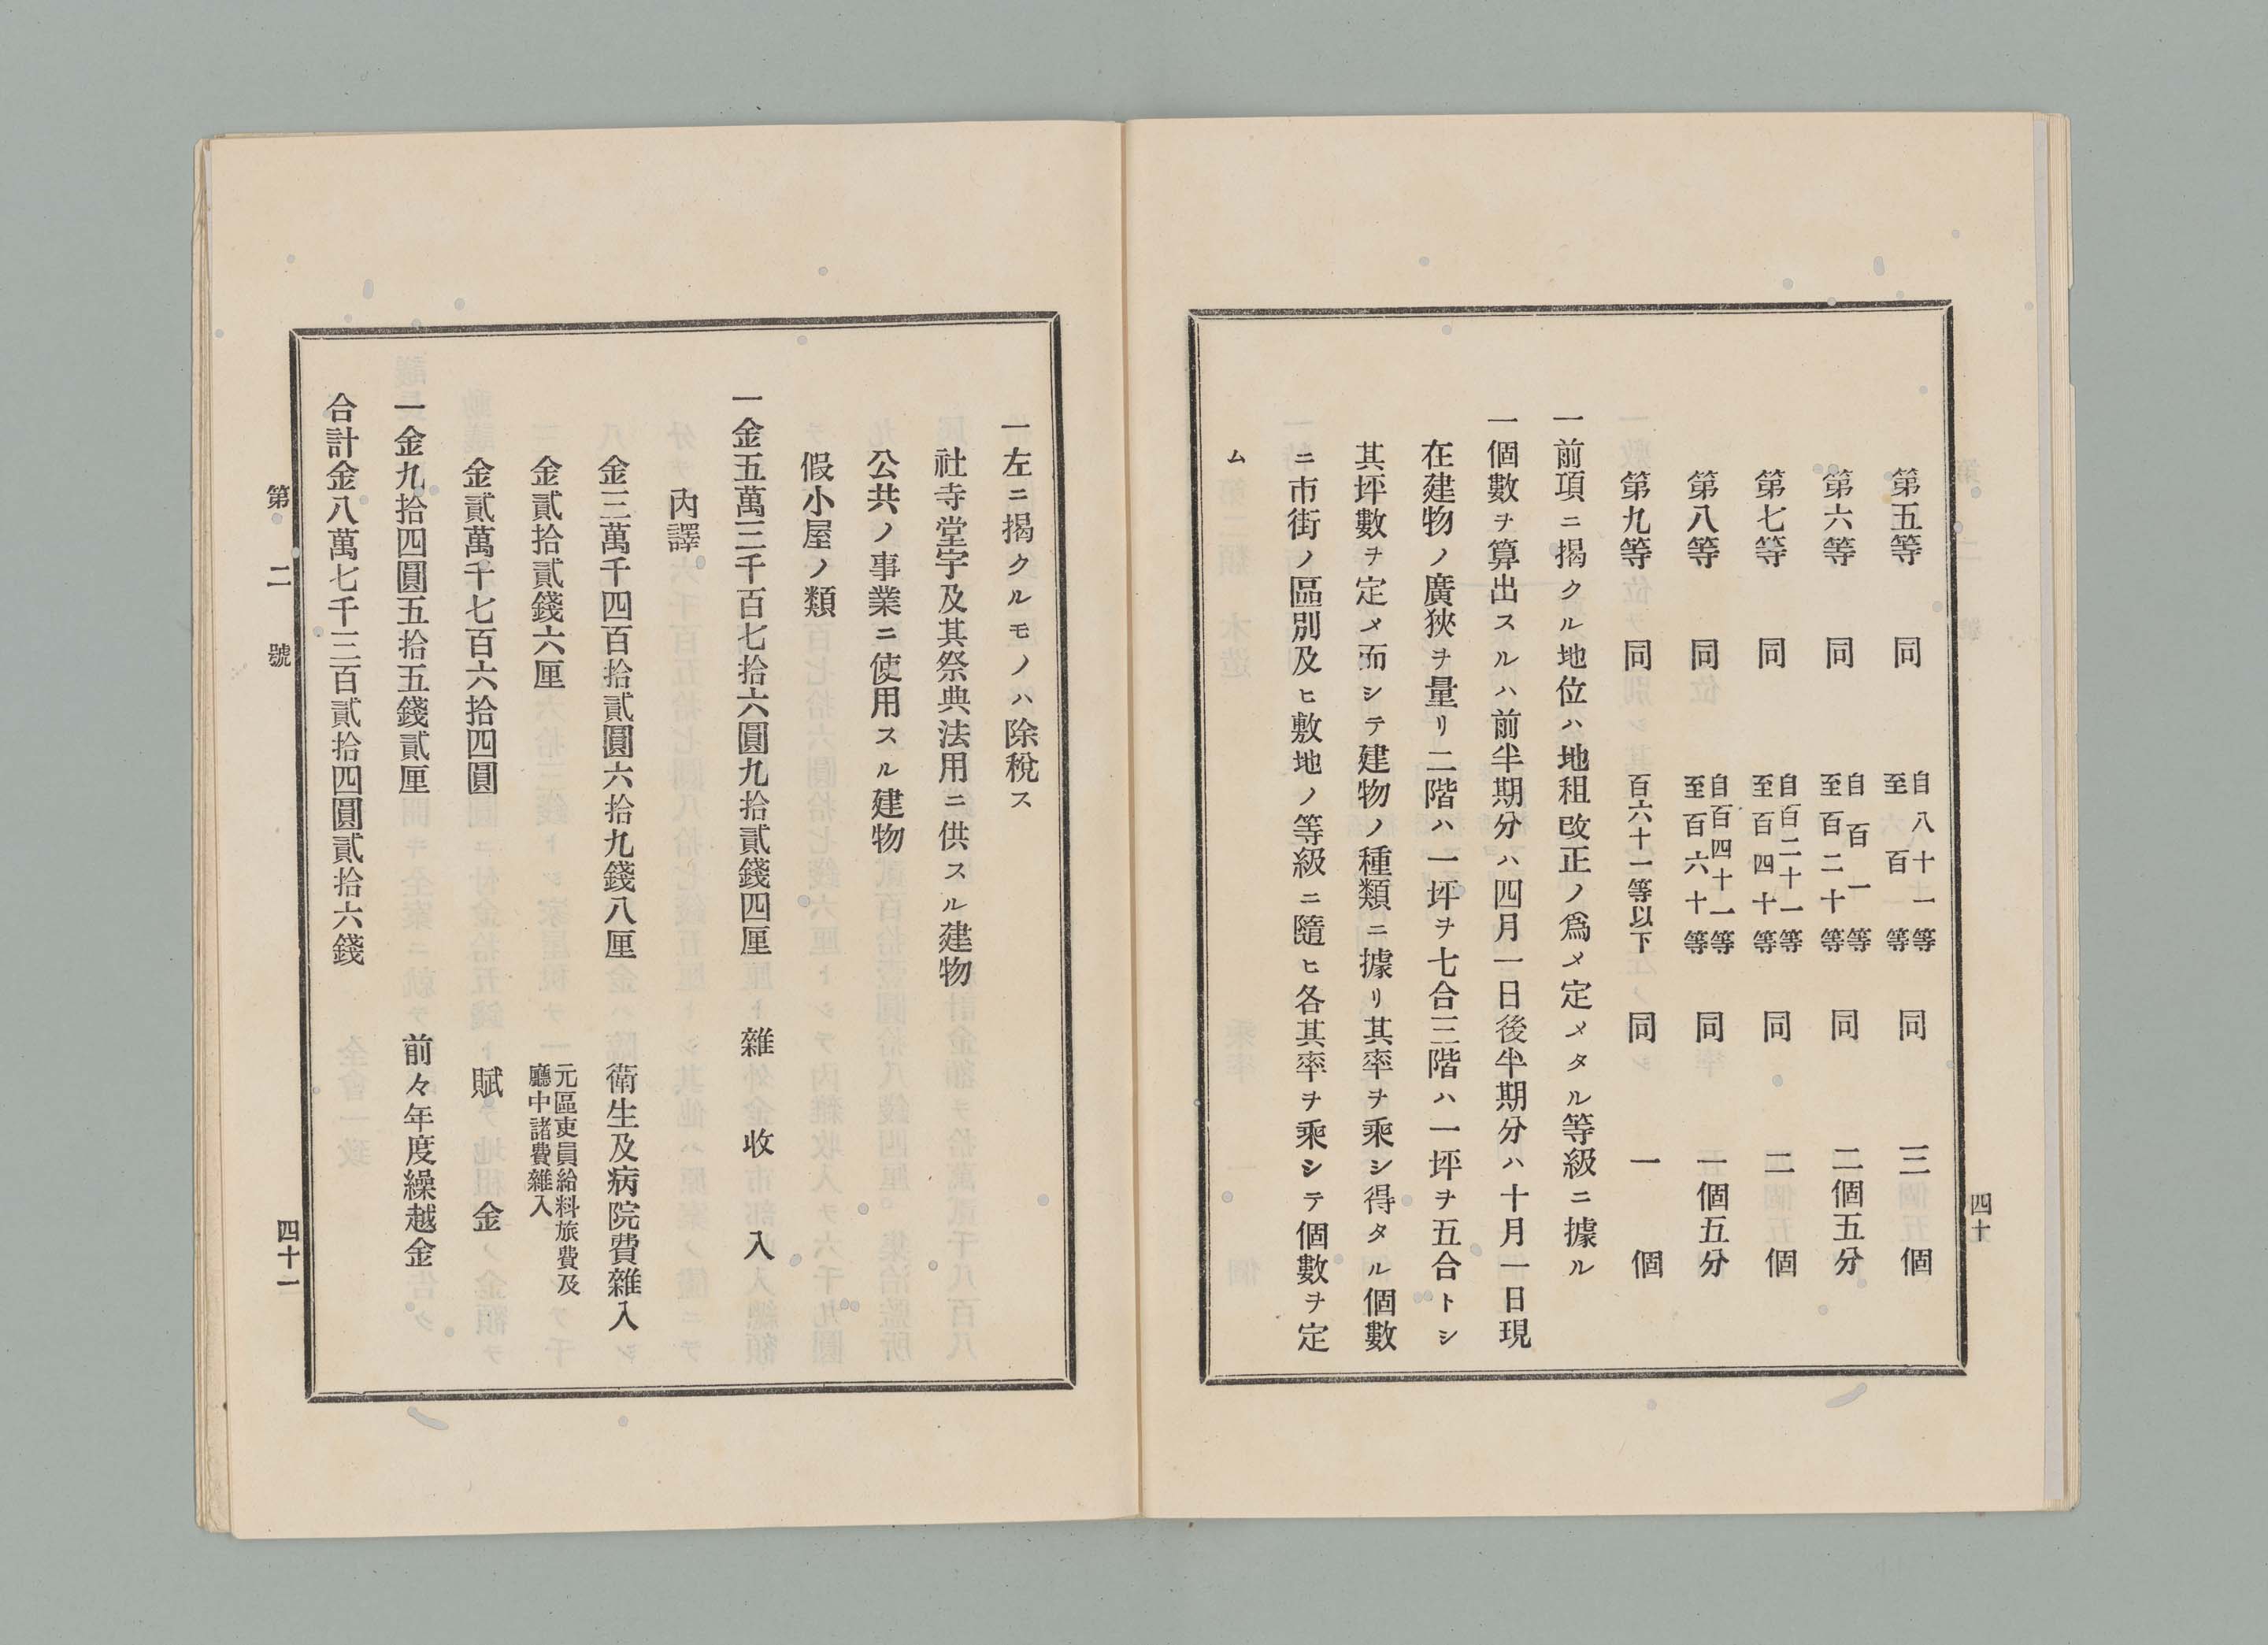 第五等　同　自八十一等至百等　同　三個
第六等　同　自百一等至百二十等　同　二個五分
第七等　同　自百二十一等至百四十等　同　二個
第八等　同　自百四十一等至百六十等　同　一個五分
第九等　同　百六十一等以下　同　一個
一前項ニ揭クル地位ハ地租改正ノ爲メ定メタル等級ニ據ル
一個數ヲ算出スルハ前半期分ハ四月一日後半期分ハ十月一日現
在建物ノ廣狹ヲ量リ二階ハ一坪ヲ七合三階ハ一坪ヲ五合トシ
其坪數ヲ定メ而シテ建物ノ種類ニ據リ其率ヲ乘シ得タル個數
ニ市街ノ區別及ヒ敷地ノ等級ニ隨ヒ各其率ヲ乘シテ個數ヲ定
ム
四十
一左ニ揭クルモノハ除稅ス
社寺堂宇及其祭典法用ニ供スル建物
公共ノ事業ニ使用スル建物
假小屋ノ類
一金五萬三千百七拾六圓九拾貳錢四厘　雜收入
內譯
金三萬千四百拾貳圓六拾九錢八厘　衛生及病院費雜入
金貳拾貳錢六厘　元區吏員給料旅費及廳中諸費雜入
金貳萬千七百六拾四圓　賦金
一金九拾四圓五拾五錢貳厘　前々年度繰越金
合計金八萬七千三百貳拾四圓貳拾六錢
第二號
四十一